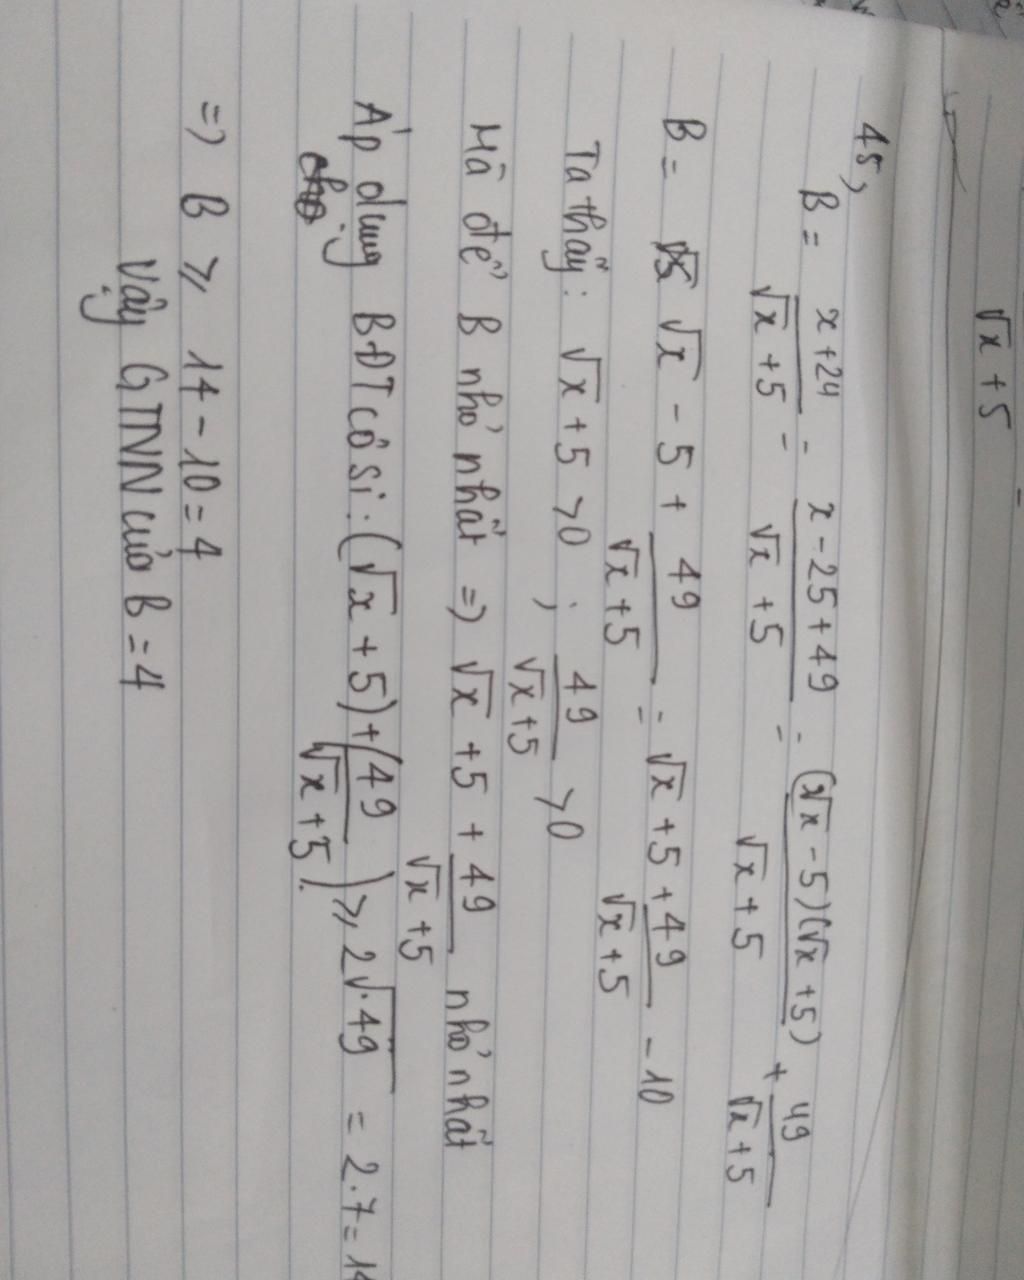 √x + 5
45,
B = x+24 / √x +5 = x - 25 + 49 / √x +5 = (√x - 5)(√x + 5) / √x + 5 + 49 / √x + 5
B = √x - 5 + 49 / √x + 5 = √x + 5 + 49 / √x + 5 - 10
Ta thấy: √x + 5 > 0 ; 49 / √x + 5 > 0
Mà để B nhỏ nhất => √x + 5 + 49 / √x + 5 nhỏ nhất
Áp dụng BĐT côsi: (√x + 5) + (49 / √x + 5) ≥ 2√49 = 2.7 = 14
=> B ≥ 14 - 10 = 4
Vậy GTNN của B = 4